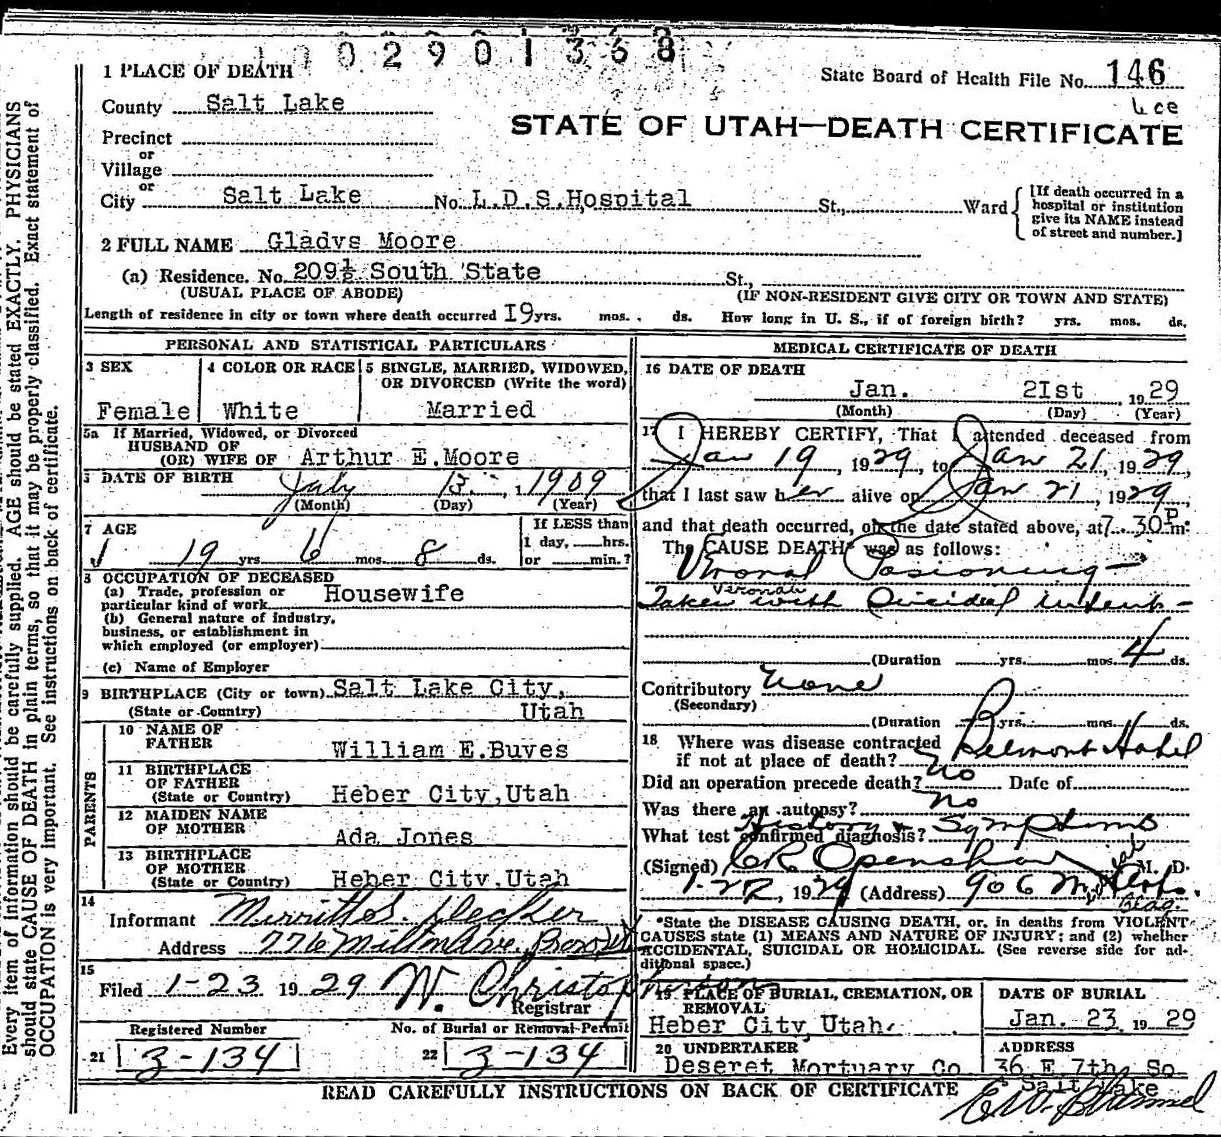 1 0 0 2 9 0 1 3 6 8
1 PLACE OF DEATH
State Board of Health File No. 146
County Salt Lake
STATE OF UTAH—DEATH CERTIFICATE
Precinct
or
Village
or
City Salt Lake No. L.D.S.Hospital St., Ward
[If death occurred in a
hospital or institution
give its NAME instead
of street and number.]
2 FULL NAME Gladys Moore
(a) Residence. No. 209½ South State St.,
(USUAL PLACE OF ABODE) (IF NON-RESIDENT GIVE CITY OR TOWN AND STATE)
Length of residence in city or town where death occurred I9 yrs. mos. ds. How long in U. S., if of foreign birth? yrs. mos. ds.
PERSONAL AND STATISTICAL PARTICULARS
3 SEX
Female
4 COLOR OR RACE
White
5 SINGLE, MARRIED, WIDOWED,
OR DIVORCED (Write the word)
Married
5a If Married, Widowed, or Divorced
HUSBAND OF
(OR) WIFE OF Arthur E.Moore
DATE OF BIRTH
July 13 1909
(Month) (Day) (Year)
7 AGE
19 yrs 6 mos. 8 ds.
If LESS than
1 day, hrs.
or min.?
8 OCCUPATION OF DECEASED
(a) Trade, profession or
particular kind of work Housewife
(b) General nature of industry,
business, or establishment in
which employed (or employer)
(c) Name of Employer
9 BIRTHPLACE (City or town) Salt Lake City,
(State or Country) Utah
PARENTS
10 NAME OF
FATHER William E.Buves
11 BIRTHPLACE
OF FATHER
(State or Country) Heber City,Utah
12 MAIDEN NAME
OF MOTHER Ada Jones
13 BIRTHPLACE
OF MOTHER
(State or Country) Heber City.Utah
14
Informant Decker
Address 776 Milton Ave.
15
Filed 1-23 1929 W. Christopherson
Registrar
Registered Number No. of Burial or Removal Permit
21 3-134 22 3-134
MEDICAL CERTIFICATE OF DEATH
16 DATE OF DEATH
Jan. 2Ist , 1929
(Month) (Day) (Year)
17 I HEREBY CERTIFY, That I attended deceased from
Jan 19, 1929, to Jan 21, 1929,
that I last saw her alive on Jan 21, 1929
and that death occurred, on the date stated above, at 7.30 P m.
The CAUSE DEATH* was as follows:
Veronal Posioning—
Veronal
Taken with Suicidal intent—
(Duration yrs. mos. 4 ds.
Contributory None
(Secondary)
(Duration yrs. mos. ds.
18 Where was disease contracted
if not at place of death? Belmont Hotel
Did an operation precede death? No Date of
Was there an autopsy? No
What test confirmed diagnosis? History & Symptoms
(Signed) C R Openshaw M. D.
1-22, 1929 (Address) 906
Bldg.
*State the DISEASE CAUSING DEATH, or, in deaths from VIOLENT
CAUSES state (1) MEANS AND NATURE OF INJURY; and (2) whether
ACCIDENTAL, SUICIDAL OR HOMICIDAL. (See reverse side for ad-
ditional space.)
19 PLACE OF BURIAL, CREMATION, OR
REMOVAL
Heber City Utah.
DATE OF BURIAL
Jan. 23, 1929
20 UNDERTAKER
Deseret Mortuary Co
ADDRESS
36 E.7th So.
Salt Lake
READ CAREFULLY INSTRUCTIONS ON BACK OF CERTIFICATE
Every item of information should be carefully supplied. AGE should be stated EXACTLY. PHYSICIANS
should state CAUSE OF DEATH in plain terms, so that it may be properly classified. Exact statement of
OCCUPATION is very important. See instructions on back of certificate.